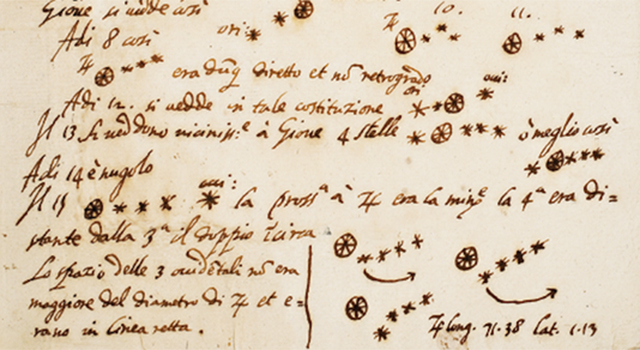 Gioue si uedde così
ori: 10. 11.
Adi 8 così
♃ era dūq diretto et nō retrogrado
Adi 12. si uedde in tale costituzione ori: occi:
Il 13 si ueddono uicinissᵉ à Gioue 4 stelle ò meglio così
Adi 14 è nugolo
Il 15 occi: la prossᵃ à ♃ era la minᵉ la 4ᵃ era di=
stante dalla 3ᵃ il doppio circa
Lo spazio delle 3 occidētali nō era
maggiore del diametro di ♃ et e=
rano in linea retta.
♃ long. 71.38 lat. 1.13